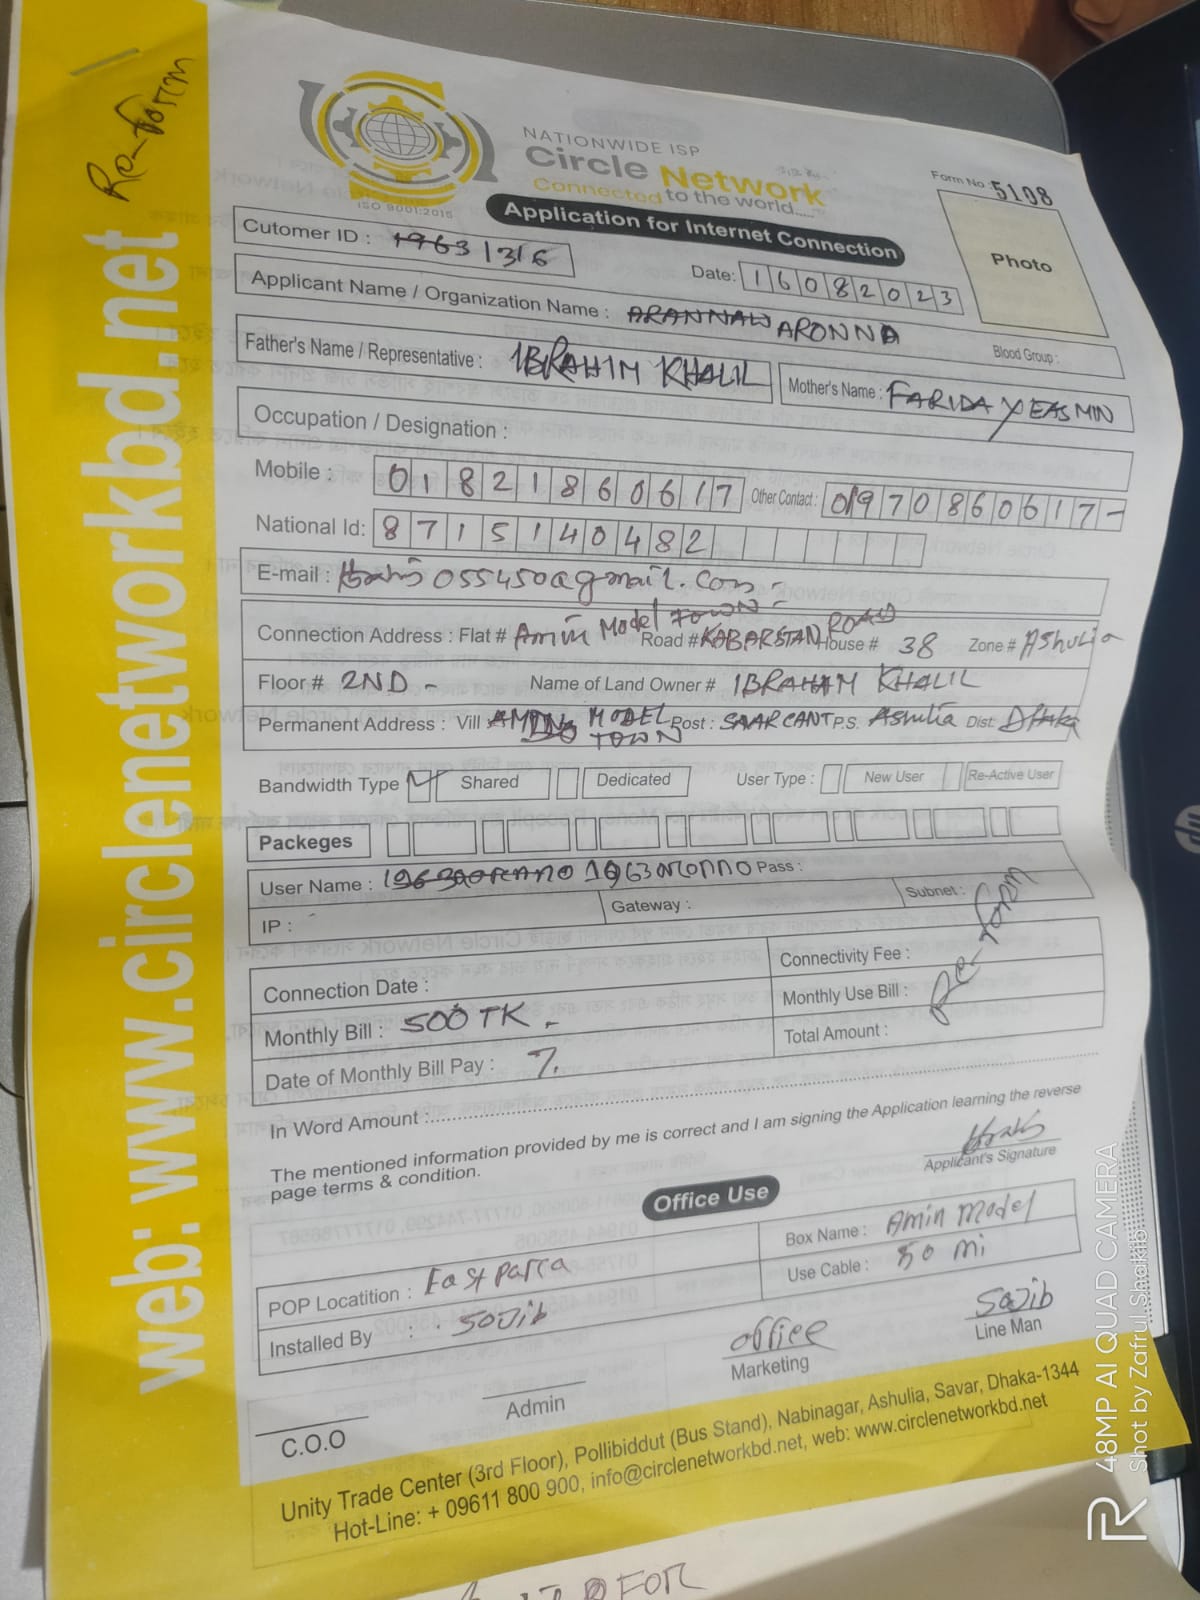 Re-form
web: www.circlenetworkbd.net
NATIONWIDE ISP
Circle Network
Connected to the world.....
ISO 9001:2015
Form No : 5108
Application for Internet Connection
Photo
Cutomer ID : 1963 1316
Date: 16082023
Applicant Name / Organization Name : ARANNAW ARONNO
Blood Group :
Father's Name / Representative : IBRAHIM KHALIL Mother's Name : FARIDA YEASMIN
Occupation / Designation :
Mobile : 01821860617 Other Contact : 01970860617-
National Id: 8715140482
E-mail : 055450@gmail.com
Connection Address : Flat # Amin Model TOWN Road # KABARSTAN ROAD House # 38 Zone # Ashulia
Floor # 2ND - Name of Land Owner # IBRAHAM KHALIL
Permanent Address : Vill MODEL TOWN Post : SAARCANT P.S. Ashulia Dist: Dhaka
Bandwidth Type Shared Dedicated User Type : New User Re-Active User
Packeges
User Name : 1963aronno Pass :
IP : Gateway : Subnet :
Connection Date : Connectivity Fee : Re-form
Monthly Bill : 500 TK - Monthly Use Bill :
Date of Monthly Bill Pay : 7. Total Amount :
In Word Amount :
The mentioned information provided by me is correct and I am signing the Application learning the reverse
page terms & condition.
Applicant's Signature
Office Use
POP Locatition : East parra Box Name : Amin Model
Installed By : Sojib Use Cable : 50 mi
office Sojib
C.O.O Admin Marketing Line Man
Unity Trade Center (3rd Floor), Pollibiddut (Bus Stand), Nabinagar, Ashulia, Savar, Dhaka-1344
Hot-Line: + 09611 800 900, info@circlenetworkbd.net, web: www.circlenetworkbd.net
FOR
48MP AI QUAD CAMERA
Shot by Zafrul Shakib